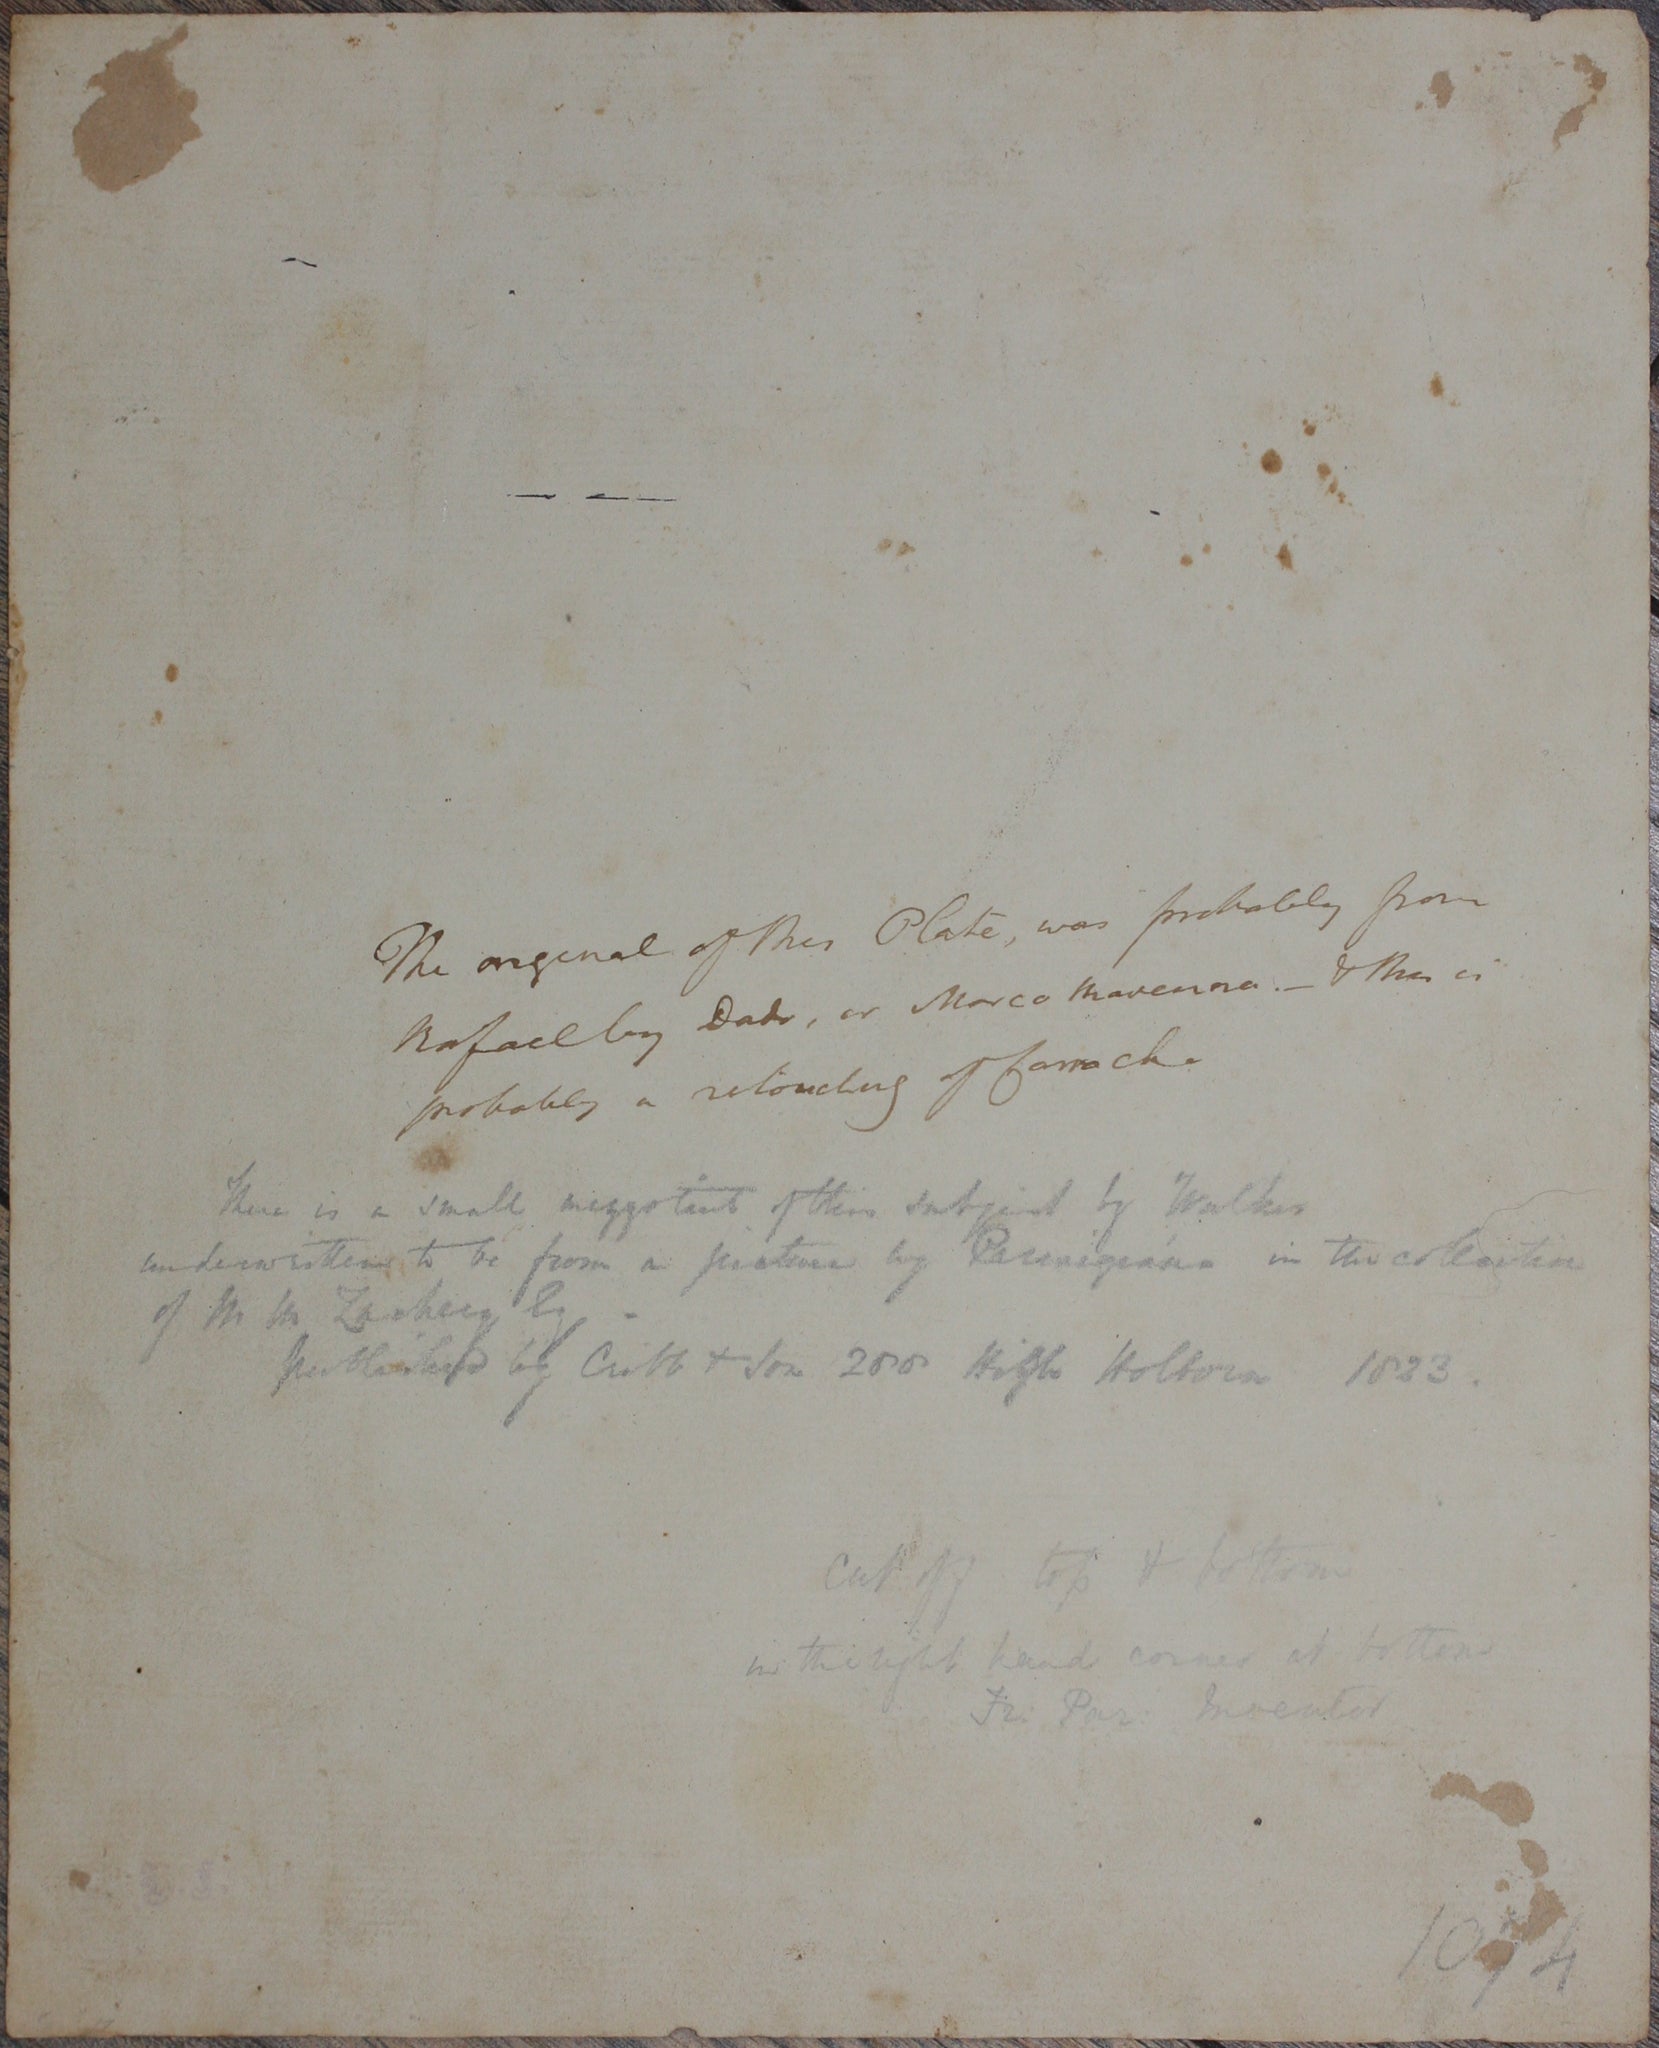 The original of this Plate, was probably from
Rafael by Dado, or Marco Ravenna. — & this is
probably a retouching of Carrach
There is a small mezzotint of this subject by Walker
underwritten to be from a picture by Parmigiano in the collection
of M M Zachary Esq -
published by Cribb & Son 288 High Holborn 1823.
Cut off top & bottom
in the right hand corner at bottom
Fr. Par. Inventor
1074